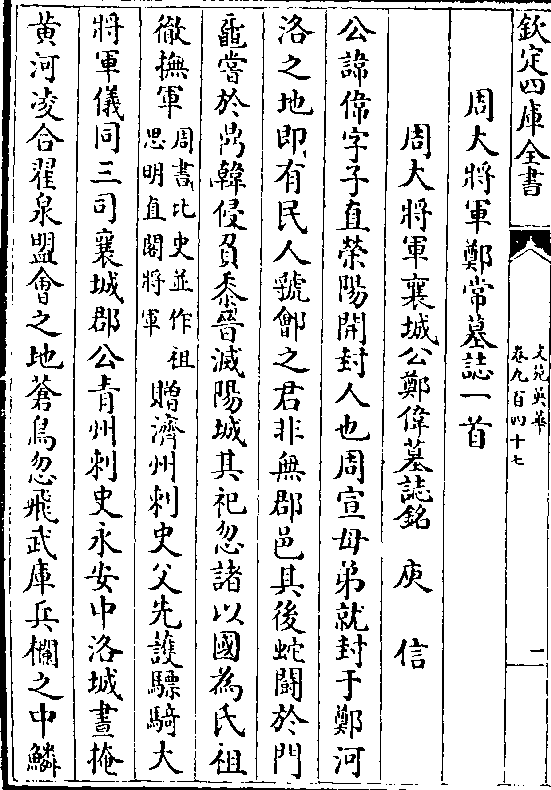 欽定四庫全書
文苑英華
卷九百四十七
一
周大將軍鄭常墓誌一首
周大將軍襄城公鄭偉墓誌銘 庾信
公諱偉字子直榮陽開封人也周宣母弟就封于鄭河
洛之地即有民人虢鄶之君非無郡邑其後蛇鬭於門
黿嘗於鼎韓侵負黍晉滅陽城其祀忽諸以國為氏祖
徹撫軍周書北史並作祖思明直閣將軍贈濟州刺史父先護驃騎大
將軍儀同三司襄城郡公青州刺史永安中洛城晝掩
黄河凌合翟泉盟會之地蒼鳥忽飛武庫兵欄之中鱗